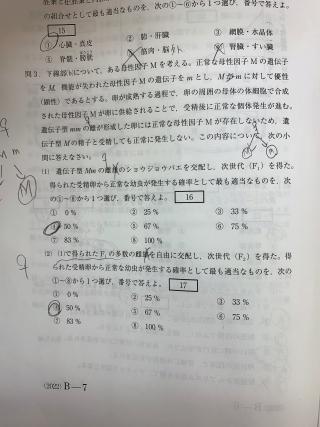 の組合せとして最も適当なものを、次の①〜⑥から1つ選び、番号で答えよ。
15
① 心臓・真皮
② 肺・肝臓
③ 網膜・水晶体
④ 脊髄・膀胱
⑤ 筋肉・脳
⑥ 腎臓・すい臓
問3 下線部(c)について、ある母性因子Mを考える。正常な母性因子Mの遺伝子
をM、機能が失われた母性因子Mの遺伝子をmとし、Mがmに対して優性
(顕性)であるとする。卵が成熟する過程で、卵の周囲の母体の体細胞で合成
された母性因子Mが卵に供給されることで、受精後に正常な個体発生が進む。
遺伝子型mmの雌が形成した卵には正常な母性因子Mが存在しないため、遺
伝子型Mの精子と受精しても正常に発生しない。この内容について、次の小
問に答えなさい。
(1) 遺伝子型Mmの雌雄のショウジョウバエを交配し、次世代(F₁)を得た。
得られた受精卵から正常な幼虫が発生する確率として最も適当なものを、次
の①〜⑧から1つ選び、番号で答えよ。 16
① 0 %
② 25 %
③ 33 %
④ 50 %
⑤ 67 %
⑥ 75 %
⑦ 83 %
⑧ 100 %
(2) (1)で得られたF₁の多数の雌雄を自由に交配し、次世代(F₂)を得た。得
られた受精卵から正常な幼虫が発生する確率として最も適当なものを、次の
①〜⑧から1つ選び、番号で答えよ。 17
① 0 %
② 25 %
③ 33 %
④ 50 %
⑤ 67 %
⑥ 75 %
⑦ 83 %
⑧ 100 %
(2022) B—7